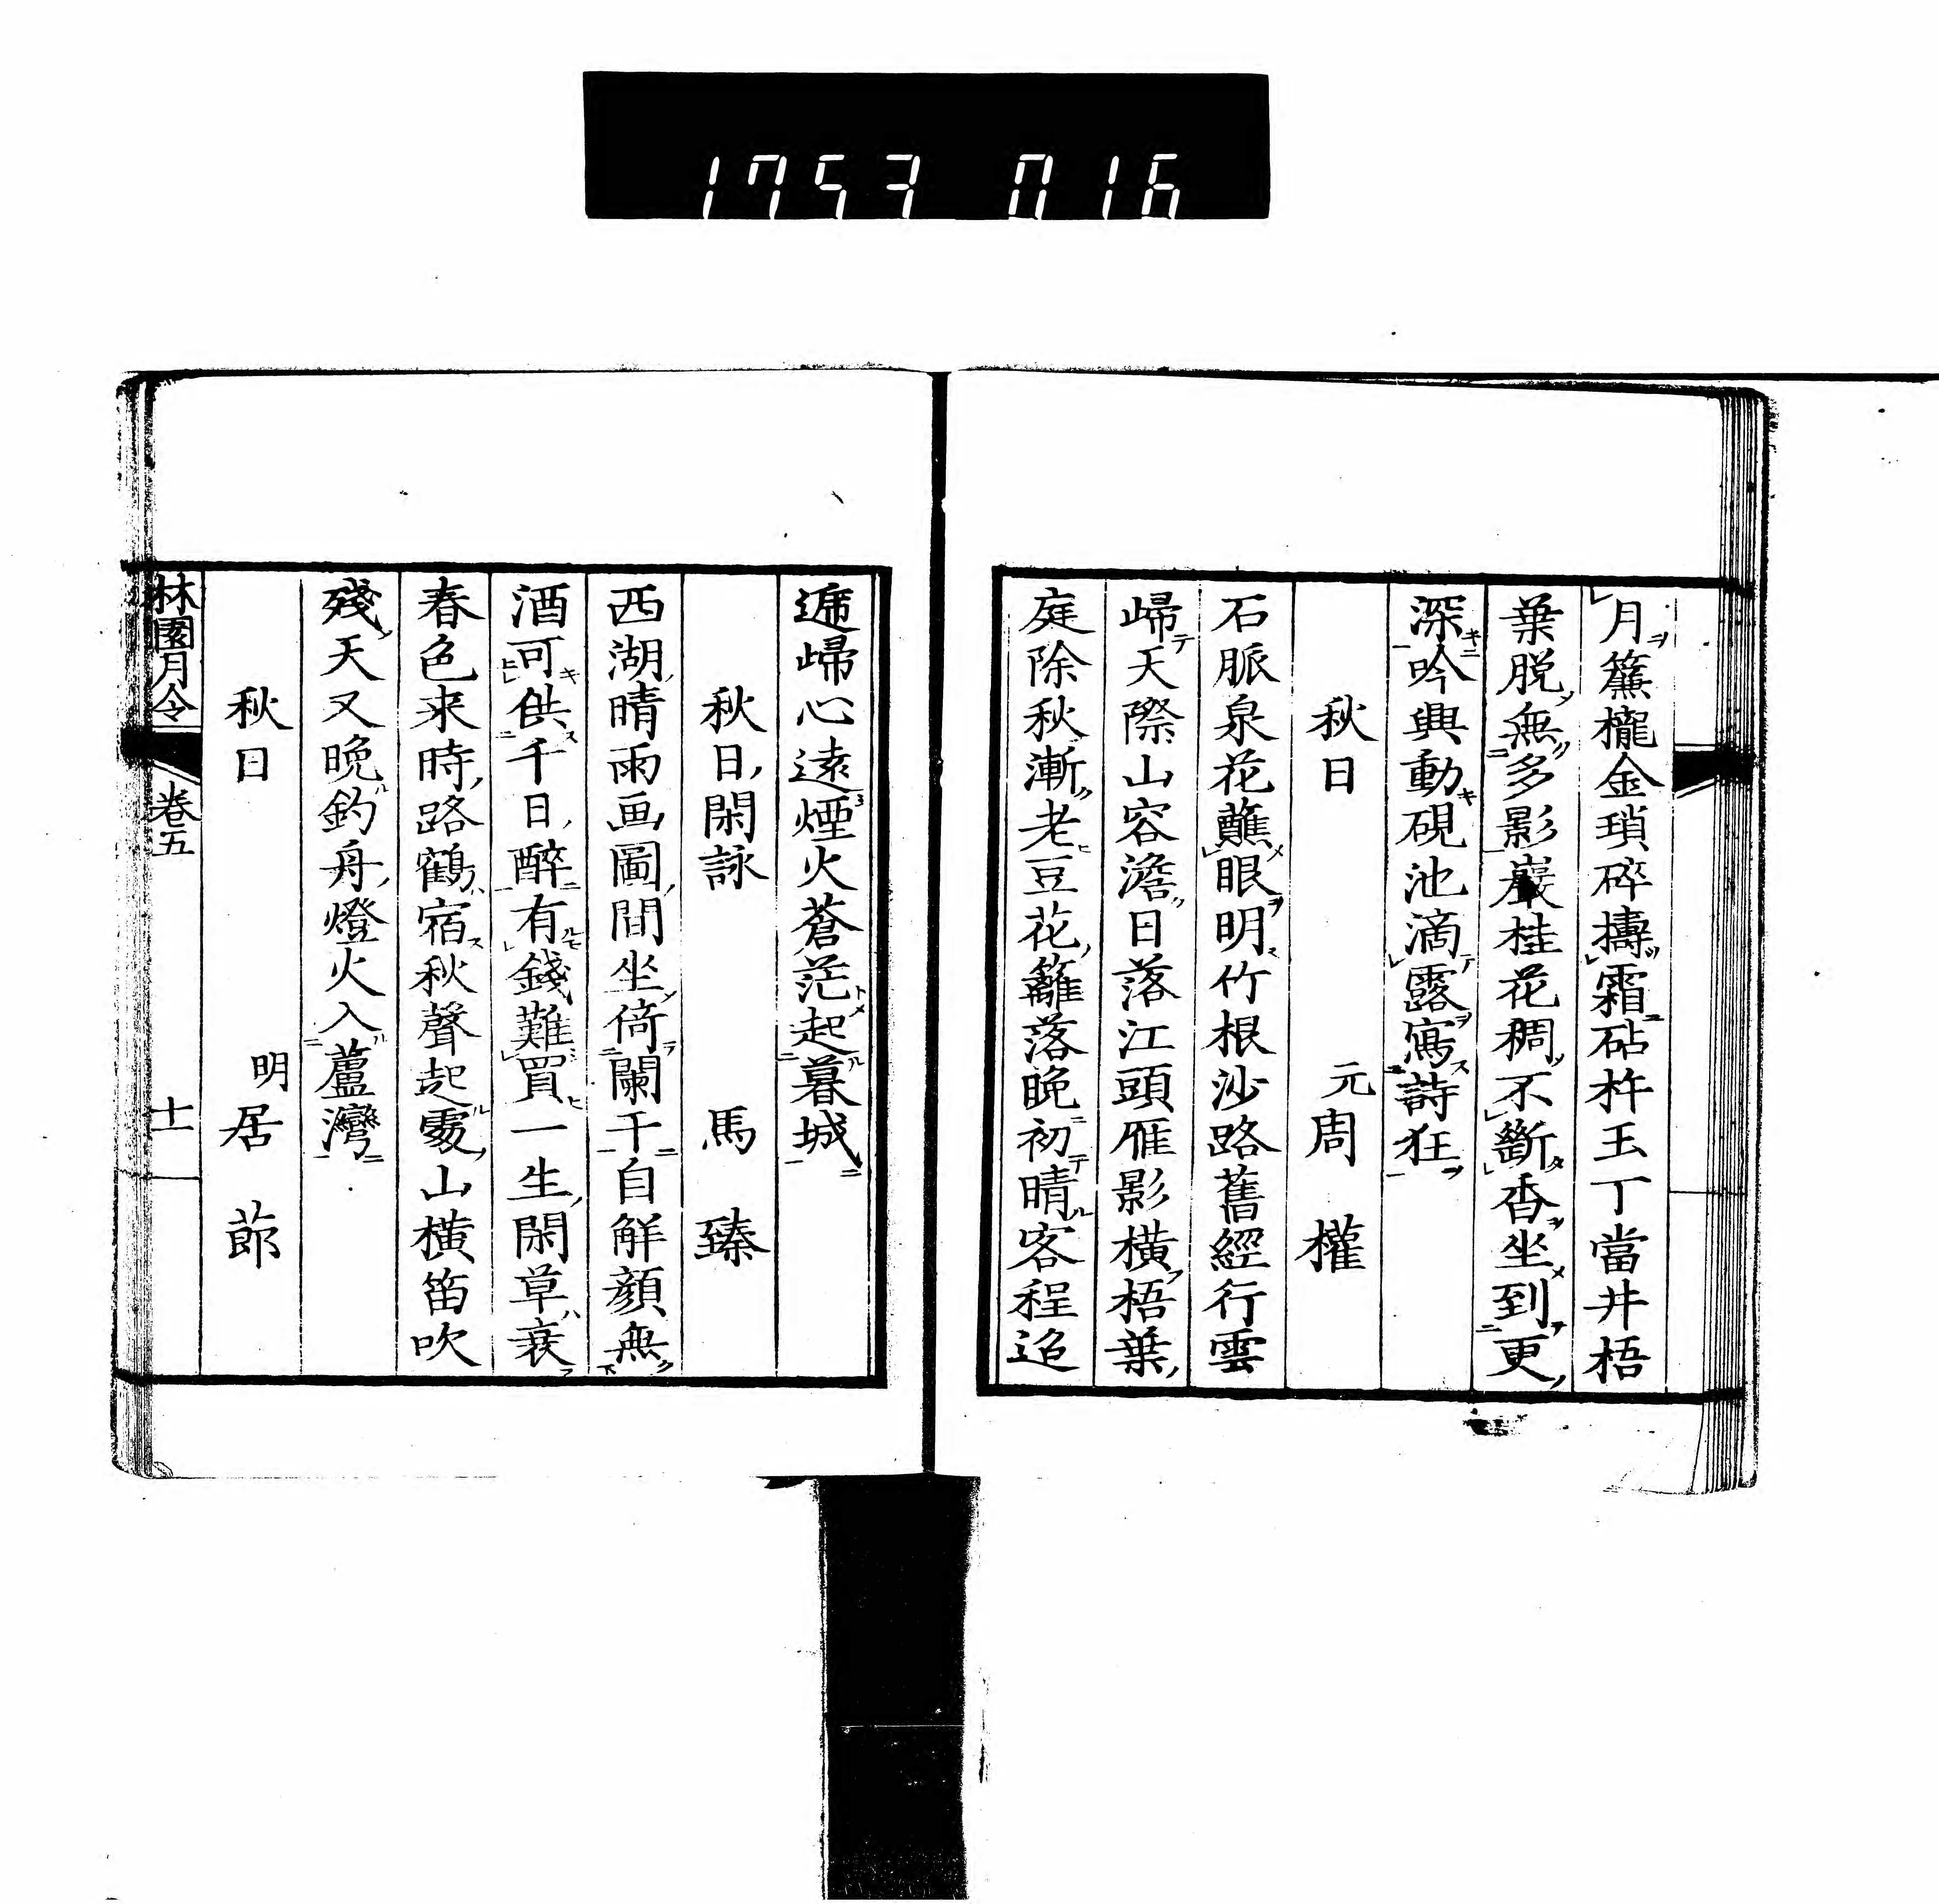 1753 016
月簾櫳金瑣碎擣霜砧杵玉丁當井梧
葉脱無多影巖桂花稠不斷香坐到更
深吟興動硯池滴露寫詩狂
秋日 元周 權
石脈泉花蘸眼明竹根沙路舊經行雲
歸天際山容澹日落江頭雁影橫梧葉
庭除秋漸老豆花籬落晚初晴客程迢
遞歸心遠煙火蒼茫起暮城
秋日閑詠 馬 臻
西湖晴雨画圖間坐倚闌干自解顏無
酒可供千日醉有錢難買一生閑草衰
春色来時路鶴宿秋聲起處山橫笛吹
殘天又晩釣舟燈火入蘆灣
秋日 明居 節
林園月令 卷五 十一